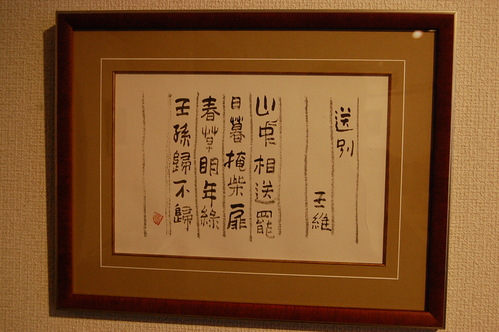 送別
王維
山中相送罷
日暮掩柴扉
春草明年綠
王孫歸不歸